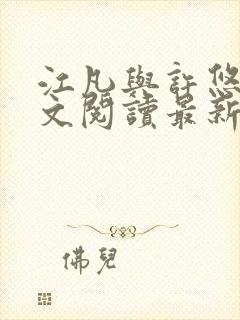 江凡與許悠
文閱讀最新
佛兒